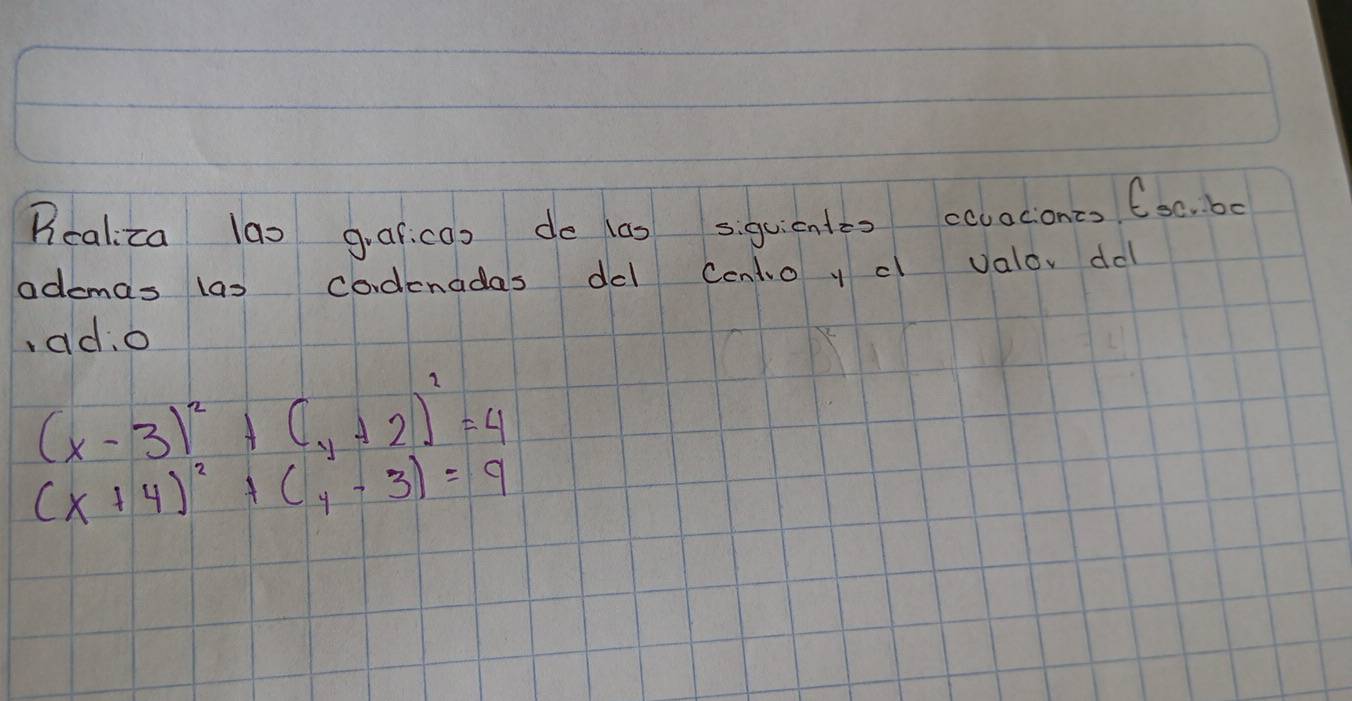 Realiza las graficas de las siguientes ecuaciones. Escribe
ademas las cordenadas del Centro y el valor del
radio
(x - 3)² + (y + 2)² = 4
(x + 4)² + (y - 3) = 9